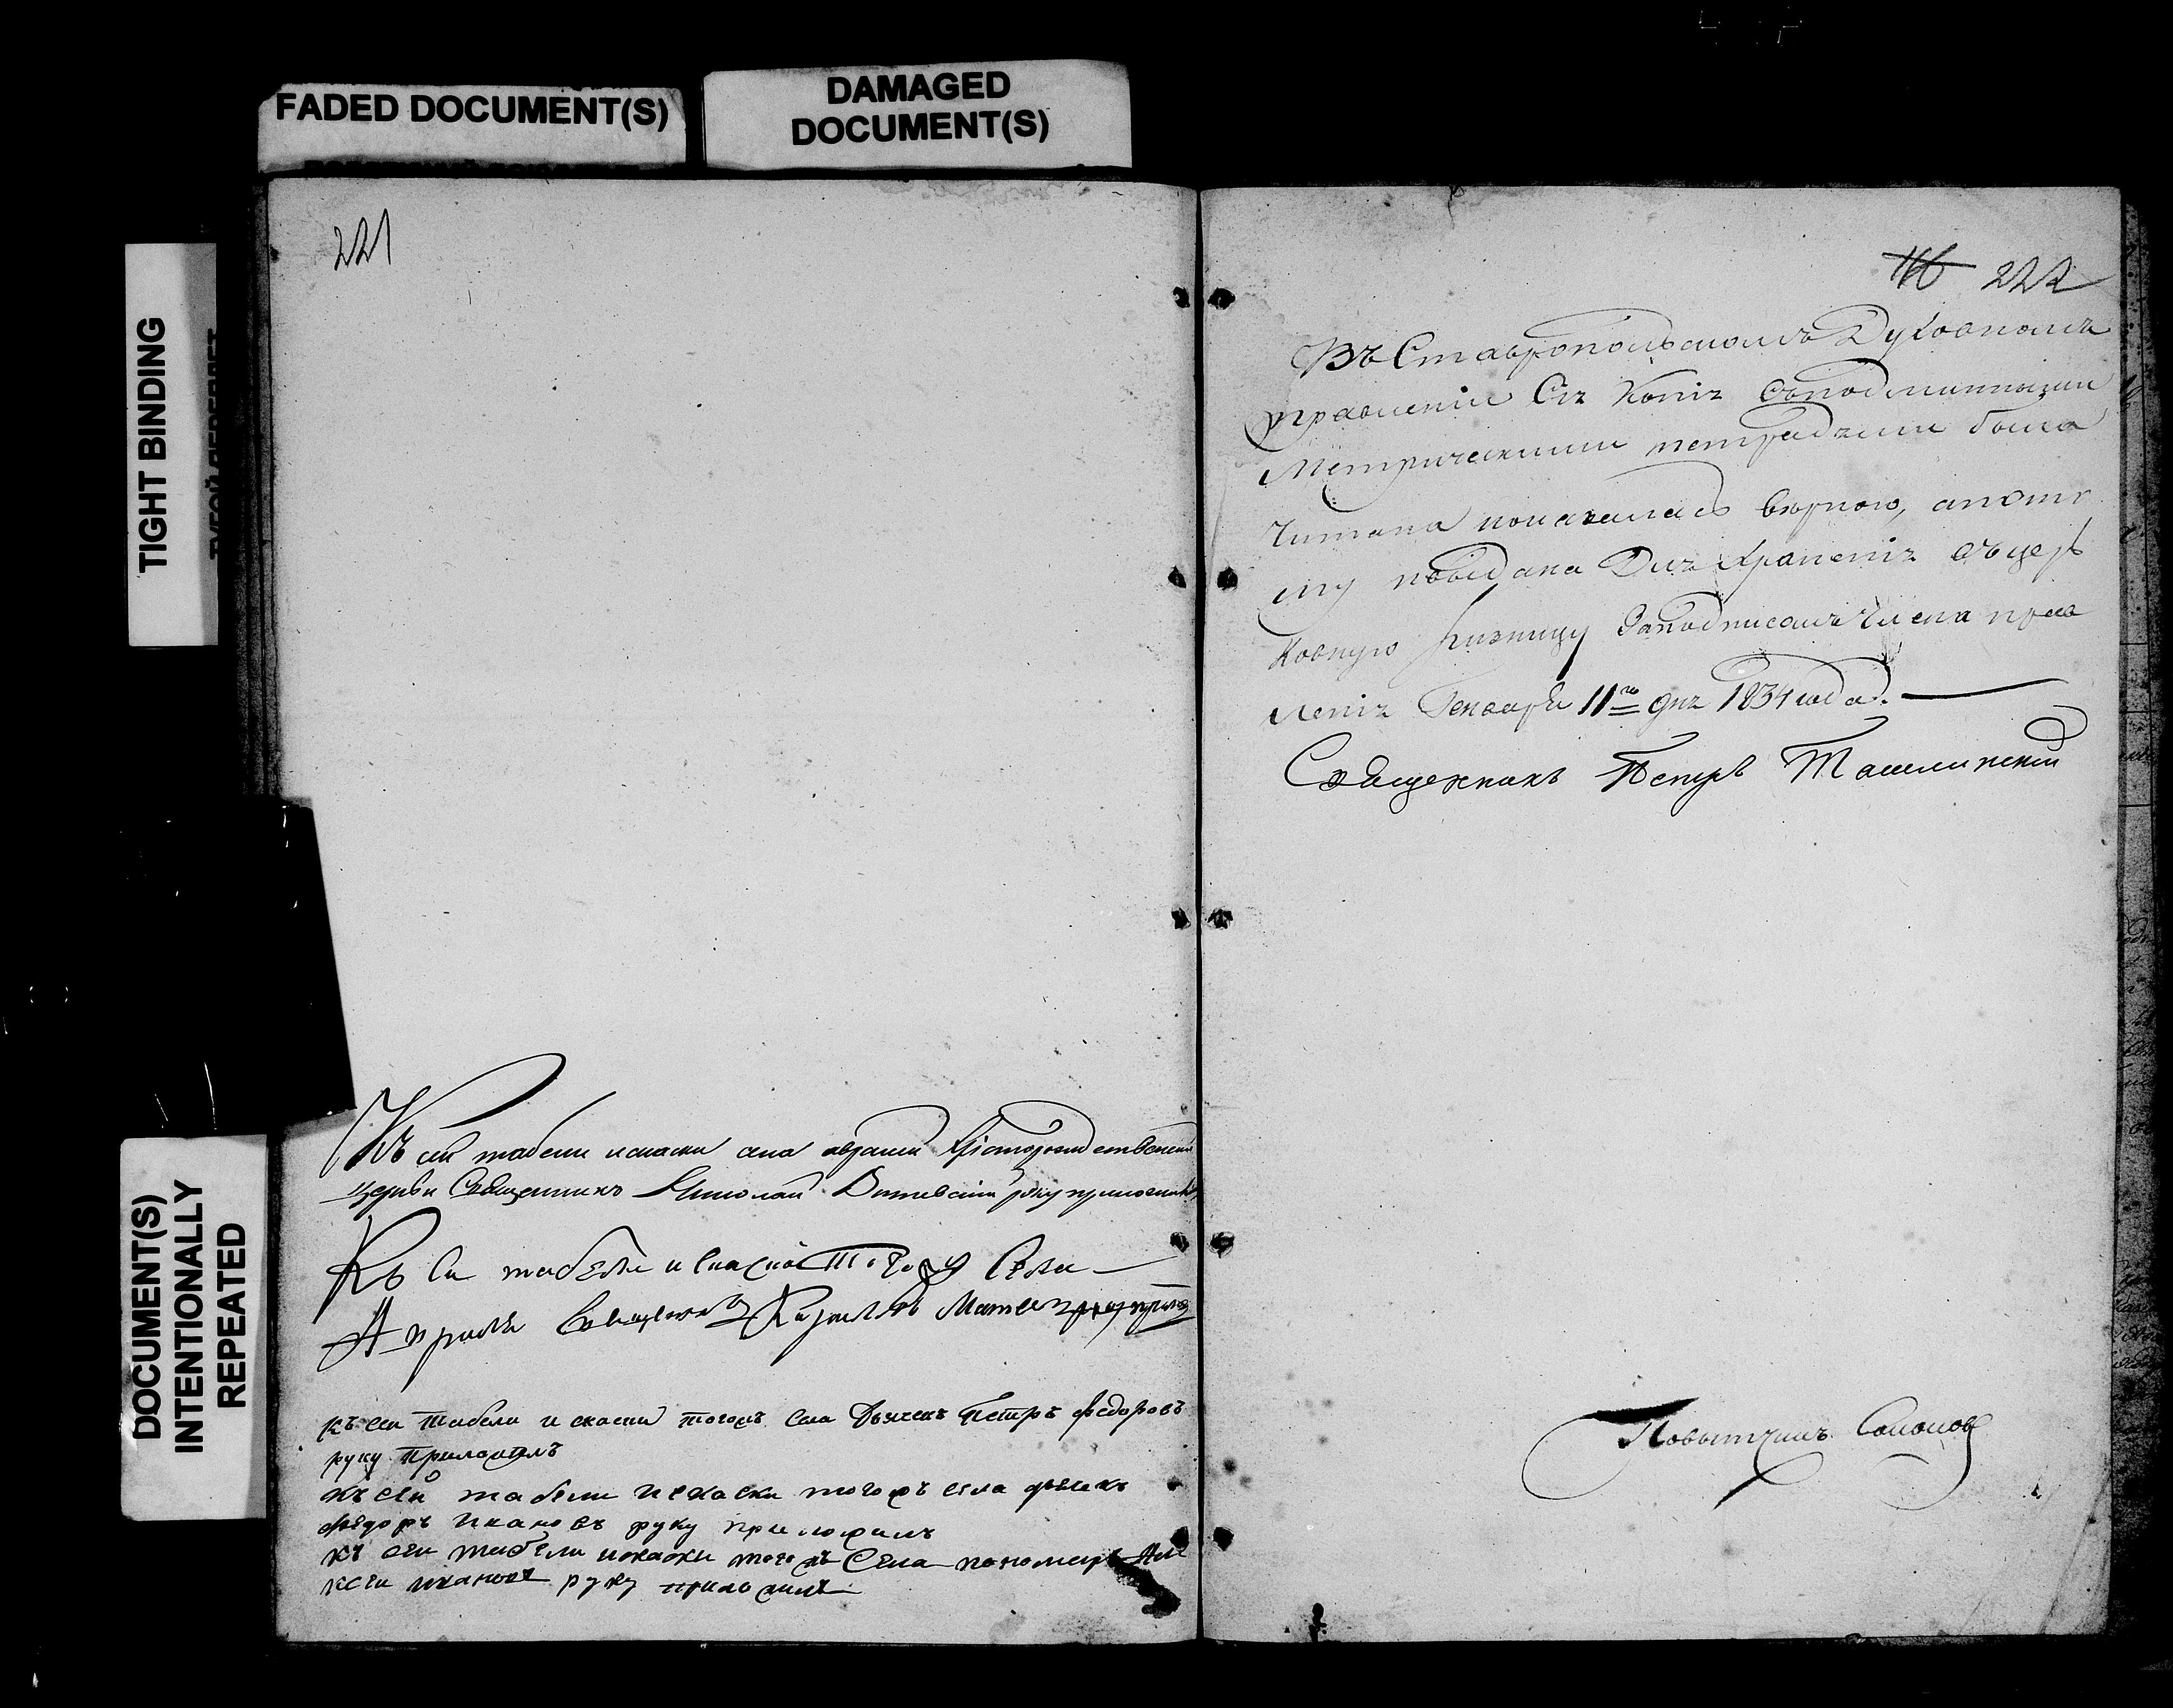 FADED DOCUMENT(S)
DAMAGED
DOCUMENT(S)
TIGHT BINDING
DOCUMENT(S)
INTENTIONALLY
REPEATED
221
Къ сей табели и скаски села Хрїсторождественской
церкви Священникъ Николай руку приложилъ
Къ сй табели и скаски тогожъ Села
Священникъ Кириллъ
къ сеи табели и скаски тогожъ села Дьячекъ Петръ Федоровъ
руку приложилъ
къ сей табели и скаски тогожъ села дьячекъ
Федоръ Ивановъ руку приложилъ
къ сеи табели искаски тогожъ Села пономарь Але
ксеи Ивановъ руку приложилъ
222
Въ Ставропольскомъ Духовномъ
правленіи Сія Копія съподлинными
Метрическими тетрадями была
Читана иоказалась вѣрною, апотo
му ивыдана Для Храненія въцер
ковную ризницу Заподписомъ Члена прав
ленія Генваря 11го дня 1834 года.
Священникъ Петръ Ташлинскій
Повытчикъ Соколовъ